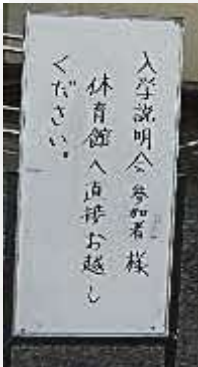 入学説明会参加者様
体育館へ直接お越し
ください。